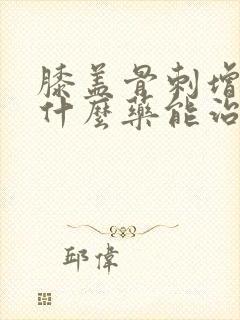 膝盖骨刺增
什麼藥能治
邱偉